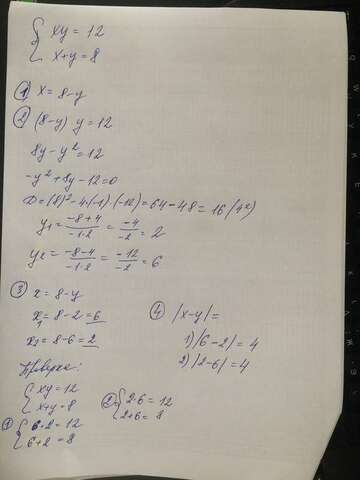 { xy = 12
{ x+y = 8
① x = 8-y
② (8-y) y = 12
8y - y² = 12
-y² + 8y - 12 = 0
D = (8)² - 4·(-1)·(-12) = 64 - 48 = 16 (4²)
y₁ = (-8+4)/(-1·2) = (-4)/(-2) = 2
y₂ = (-8-4)/(-1·2) = (-12)/(-2) = 6
③ x = 8-y
x₁ = 8-2 = 6
x₂ = 8-6 = 2
④ |x-y| =
1) |6-2| = 4
2) |2-6| = 4
Проверка:
{ xy = 12
{ x+y = 8
① { 6·2 = 12
{ 6+2 = 8
② { 2·6 = 12
{ 2+6 = 8